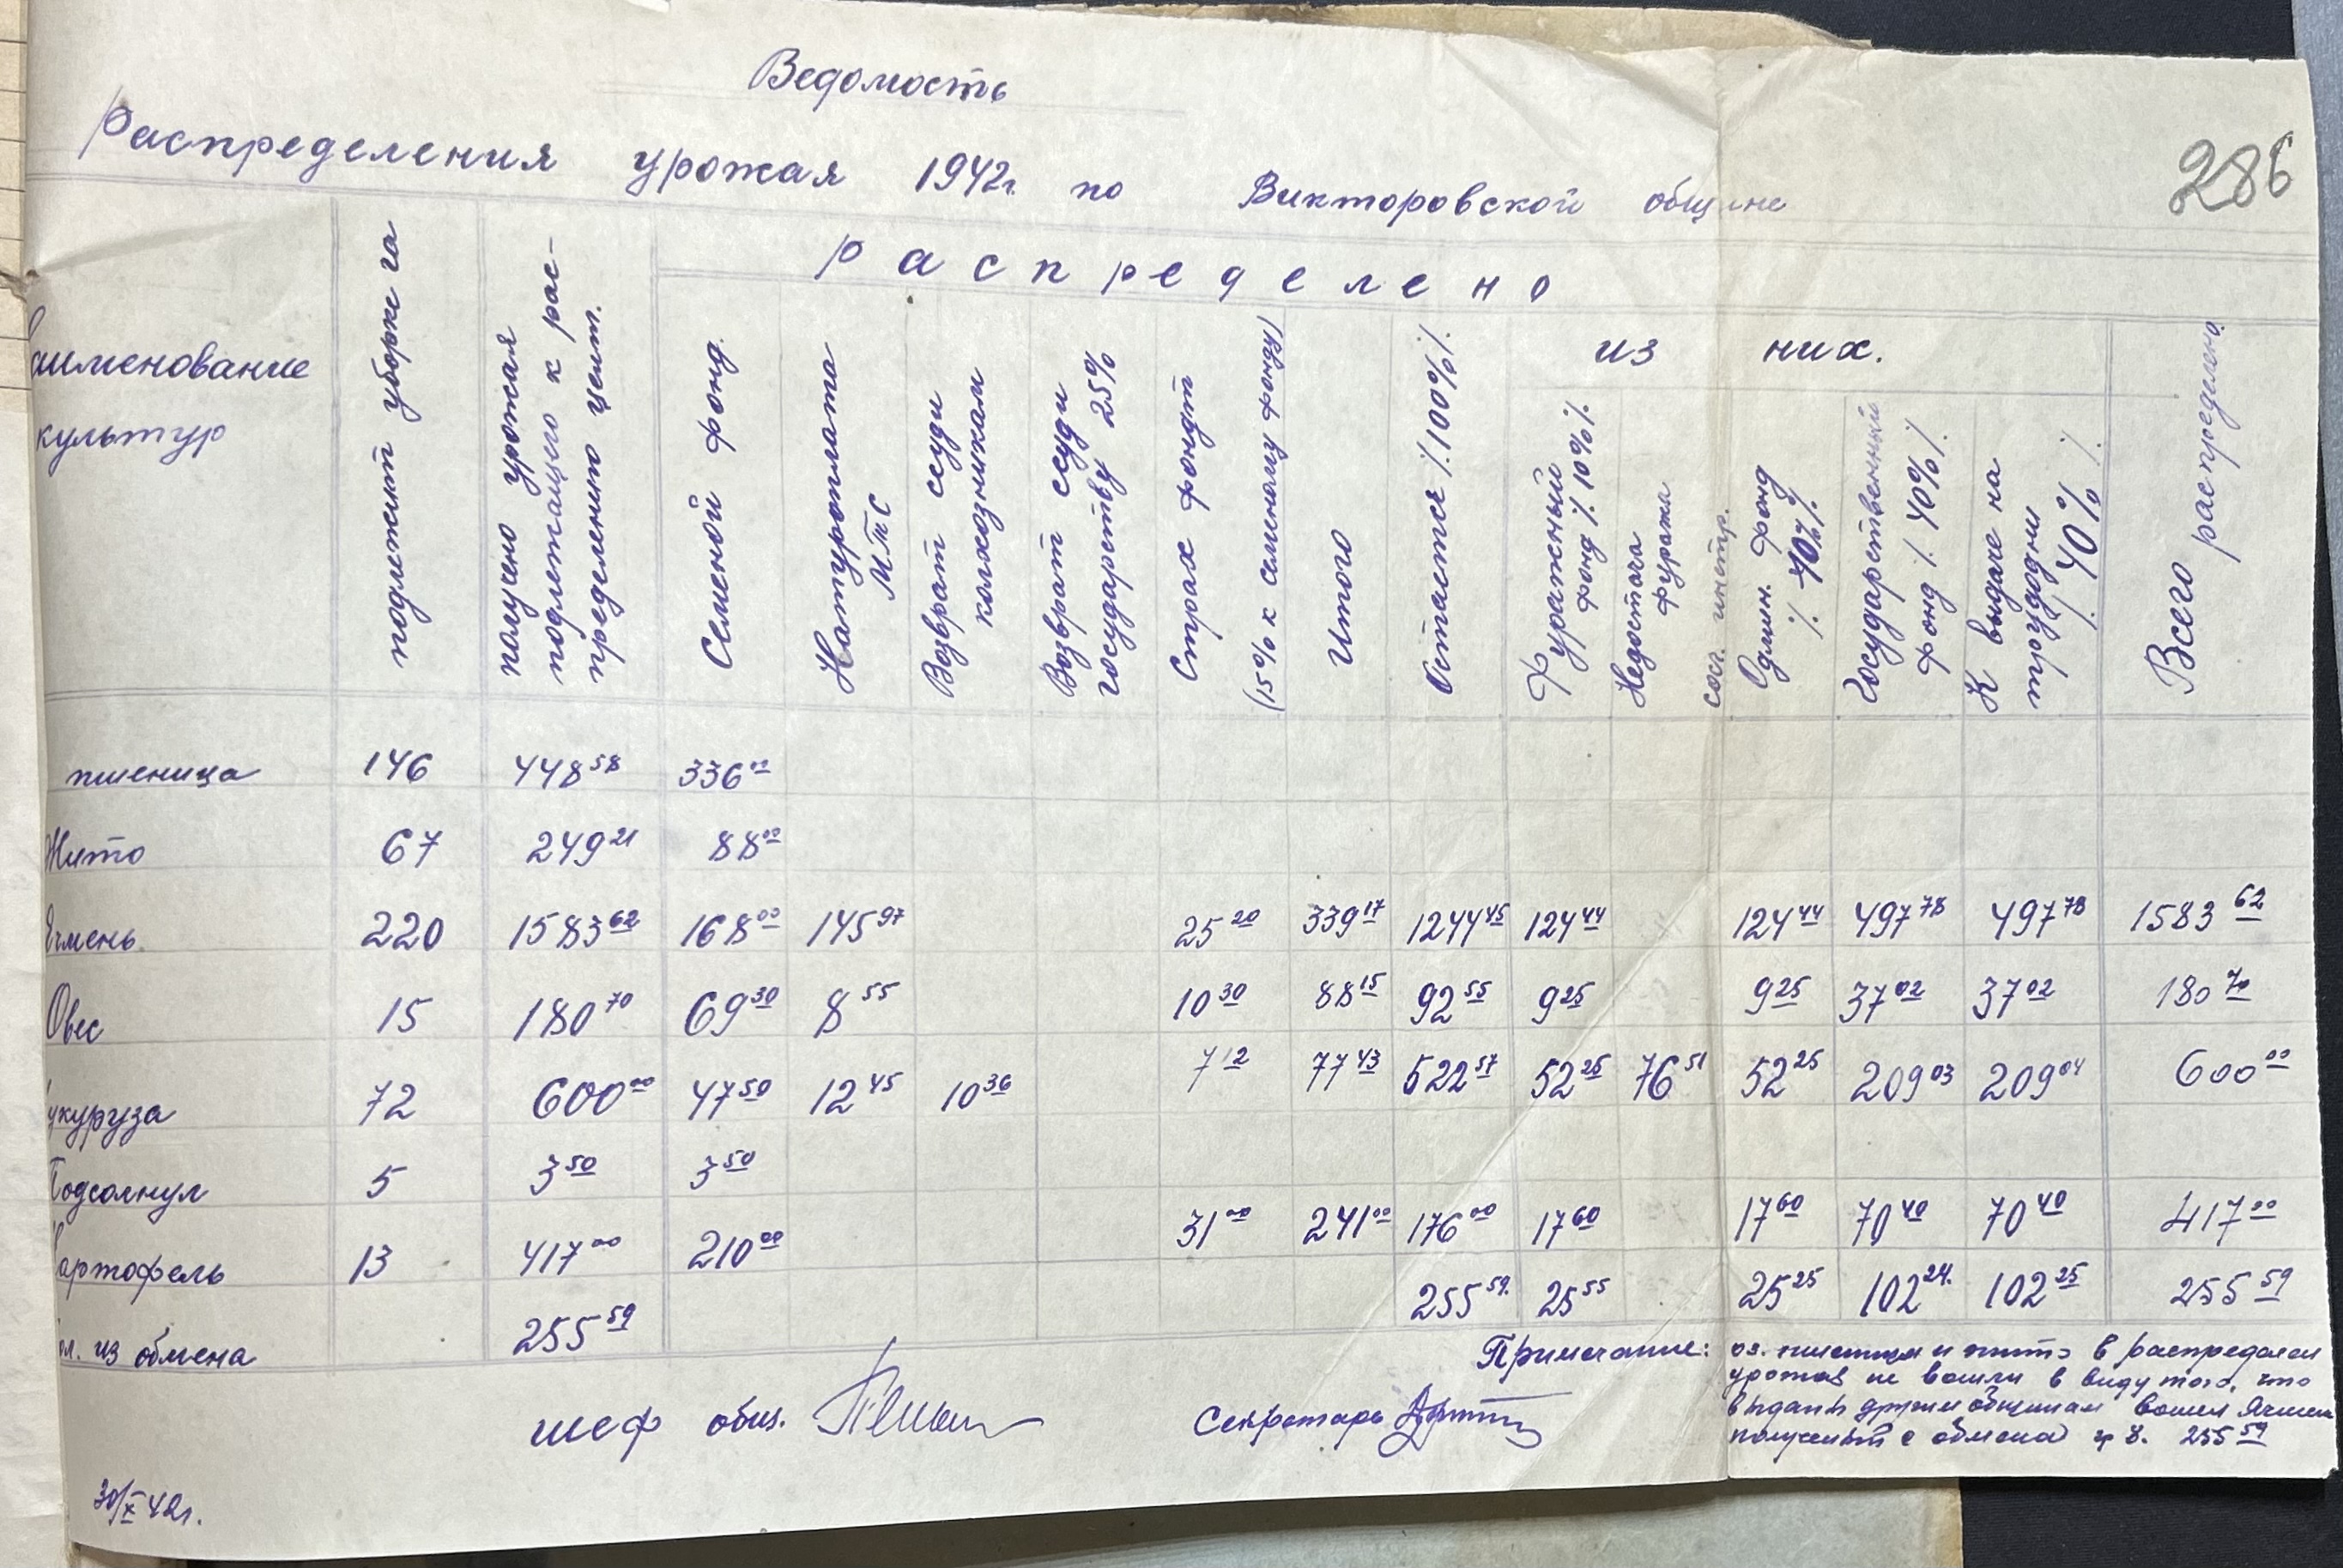 Ведомость
Распределения урожая 1942г. по Викторовской общине
286
аименование культур
подлежит уборке га
получено урожая подлежащего к рас-
пределению цент.
распределено
Семеной фонд.
Натуроплата МТС
Возврат ссуди колхозникам
Возврат ссуди государству 25%
Страх фондт (15% к семеному фонду)
Итого
Остается % 100%%
из них.
Фуражный фонд % 10%%
Недостача фуража
Государственный фонд % 40%%
К выдаче на трудодни % 40%%
Всего распределено
пшеница 146 448 58 336 00
Жито 67 249 21 88 00
Ячмень 220 1583 62 168 00 145 97 25 20 339 17 1244 45 124 44 124 44 497 78 497 78 1583 62
Овес 15 180 70 69 30 8 55 10 30 88 15 92 55 9 25 9 25 37 02 37 02 180 70
укуруза 72 600 00 47 50 12 45 10 36 7 12 77 43 522 57 52 25 76 51 52 25 209 03 209 04 600 00
Подсолнул 5 3 50 3 50
артофель 13 417 00 210 00 31 00 241 00 176 00 17 60 17 60 70 40 70 40 417 00
ол. из обмена 255 59 255 59 25 55 25 25 102 24 102 25 255 59
Примечание: оз. пшеница и жито в распределен
урожая не вошли в виду того, что
выданы другим общинам вошел Ячмень
получений с обмена цт. 255 59
шеф общ.
Секретарь
30/X 42г.